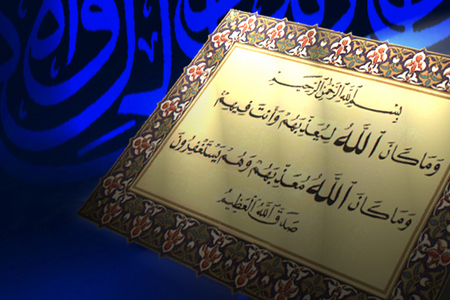 بِسْمِ اللَّهِ الرَّحْمَٰنِ الرَّحِيمِ
وَمَا كَانَ اللَّهُ لِيُعَذِّبَهُمْ وَأَنتَ فِيهِمْ
وَمَا كَانَ اللَّهُ مُعَذِّبَهُمْ وَهُمْ يَسْتَغْفِرُونَ
صَدَقَ اللَّهُ الْعَظِيمُ